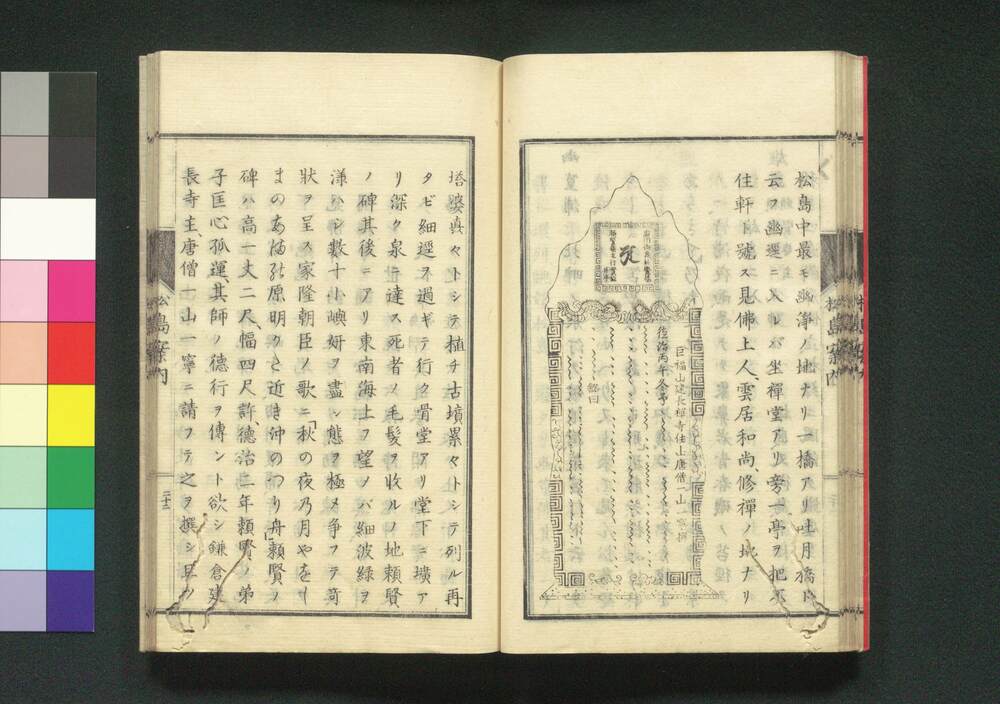 松島中最モ幽淨ノ地ナリ一橋アリ吐月橋ト
云フ幽逕ニ入レバ坐禪堂アリ旁一亭ヲ把不
住軒ト號ス見佛上人、雲居和尚、修禪ノ地ナリ
巨福山建長禪寺住山唐僧一山一寧撰
銘曰
塔婆眞々トシテ植チ古墳累々トシテ列ル再
タビ細逕ヲ過ギテ行ク骨堂アリ堂下ニ壙ア
リ深ク泉ニ達ス死者ノ毛髮ヲ收ルノ地頼賢
ノ碑其後ニアリ東南海上ヲ望ノバ細波緑ヲ
漾ハシ數十小嶼妍ヲ盡シ態ヲ極メ爭フテ奇
狀ヲ呈ス家隆朝臣ノ歌ニ「秋の夜乃月やをし
まのあまの原明かた近き沖のつり舟」頼賢ノ
碑ハ高一丈二尺、幅四尺許、德治二年頼賢ノ弟
子匡心孤運、其師ノ德行ヲ傳ント欲シ鎌倉建
長寺主、唐僧一山一寧ニ請フテ之ヲ撰シ且ツ
松島案内
二十二